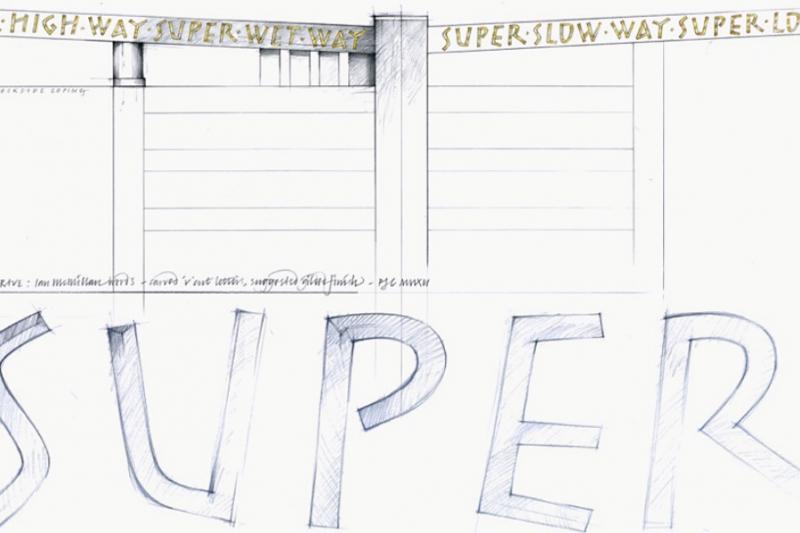 ·HIGH·WAY·SUPER·WET·WAY SUPER·SLOW·WAY·SUPER·LO
COPING
Ian McMillan words - carved 'v' cut letters, suggested gilded finish -
SUPER